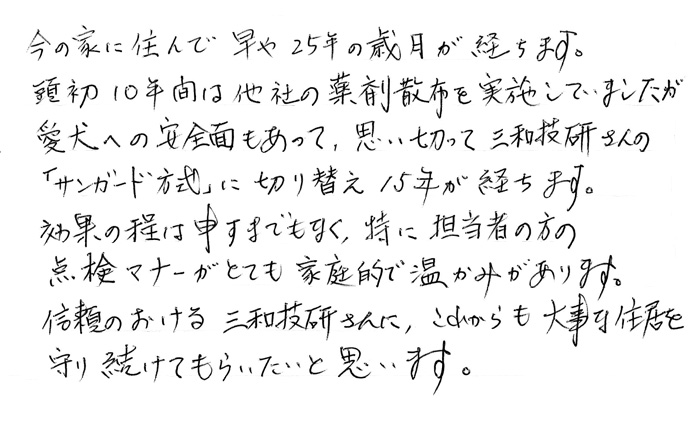 今の家に住んで早や25年の歳月が経ちます。
頭初10年間は他社の薬剤散布を実施していましたが
愛犬への安全面もあって、思い切って三和技研さんの
「サンガード方式」に切り替え15年が経ちます。
効果の程は申すまでもなく、特に担当者の方の
点検マナーがとても家庭的で温かみがあります。
信頼のおける三和技研さんに、これからも大事な住居を
守り続けてもらいたいと思います。